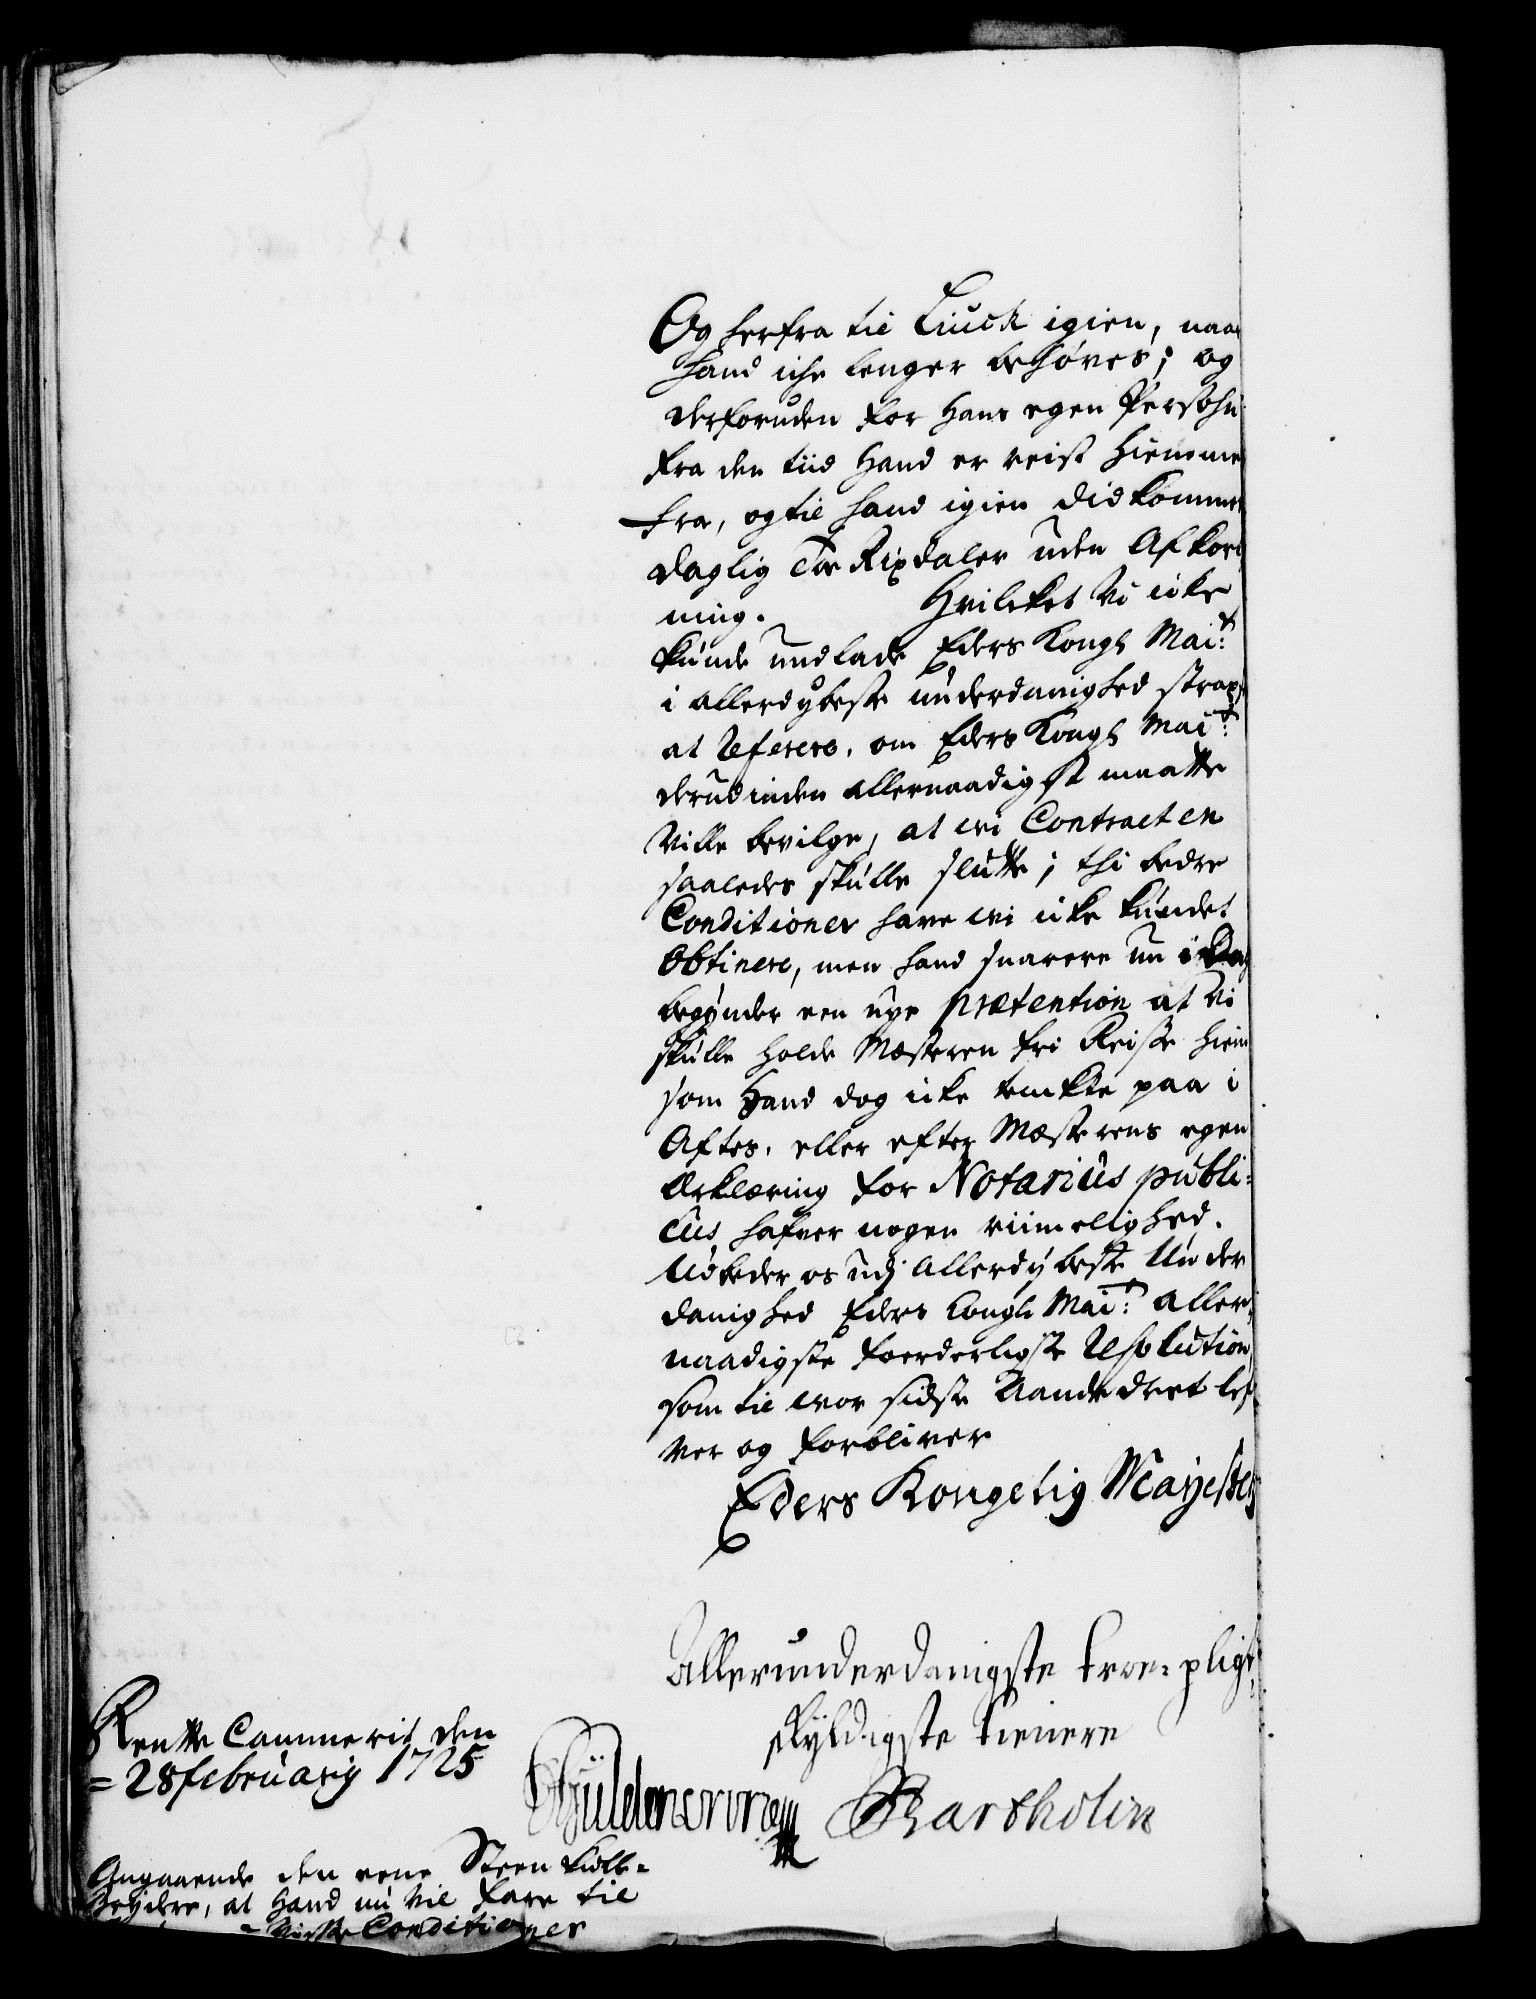 Og herfra til Lück igien, naar
hand iche lenger behøves; og
derforuden for hans egen Persohn
fra den tiid hand er reist hiemme
fra, og til hand igien did kommer
daglig Toe Rixdaler uden Afkort
ning. Hvilcket Vi icke
kunde undlade Eders Kongl Mai:t
i allerdybeste underdanighed strax
at referere, om Eders Kongl Mai:t
derudinden allernaadigst maatte
Ville bevilge, at wi Contracten
saaledes skulle slutte; thi bedre
Conditioner have wi icke kundet
obtinere, men hand snarere nu i Dag
begynder een nye prætention at Vi
skulle holde Mæsteren fri Reise hiem
som hand dog icke tenkte paa i
Aftes, eller efter Mæsterens egen
Erklæring for Notarius publi=
cus hafver nogen riimelighed.
Udbeder os udj allerdybeste Under
danighed Eders Kongl Mai:t aller=
naadigste foerderligste Resolution,
som til wor sidste Aandedret lef
ver og forbliver
Eders Kongelig Mayestets
Allerunderdanigste troe= pligt=
skyldigste tienere
Rentte Cammerit den
= 28 february 1725
Güldencrone Bartholin
Angaaende den eene Steen Kull=
Brydere, at hand nu vil fare til
visse Conditioner